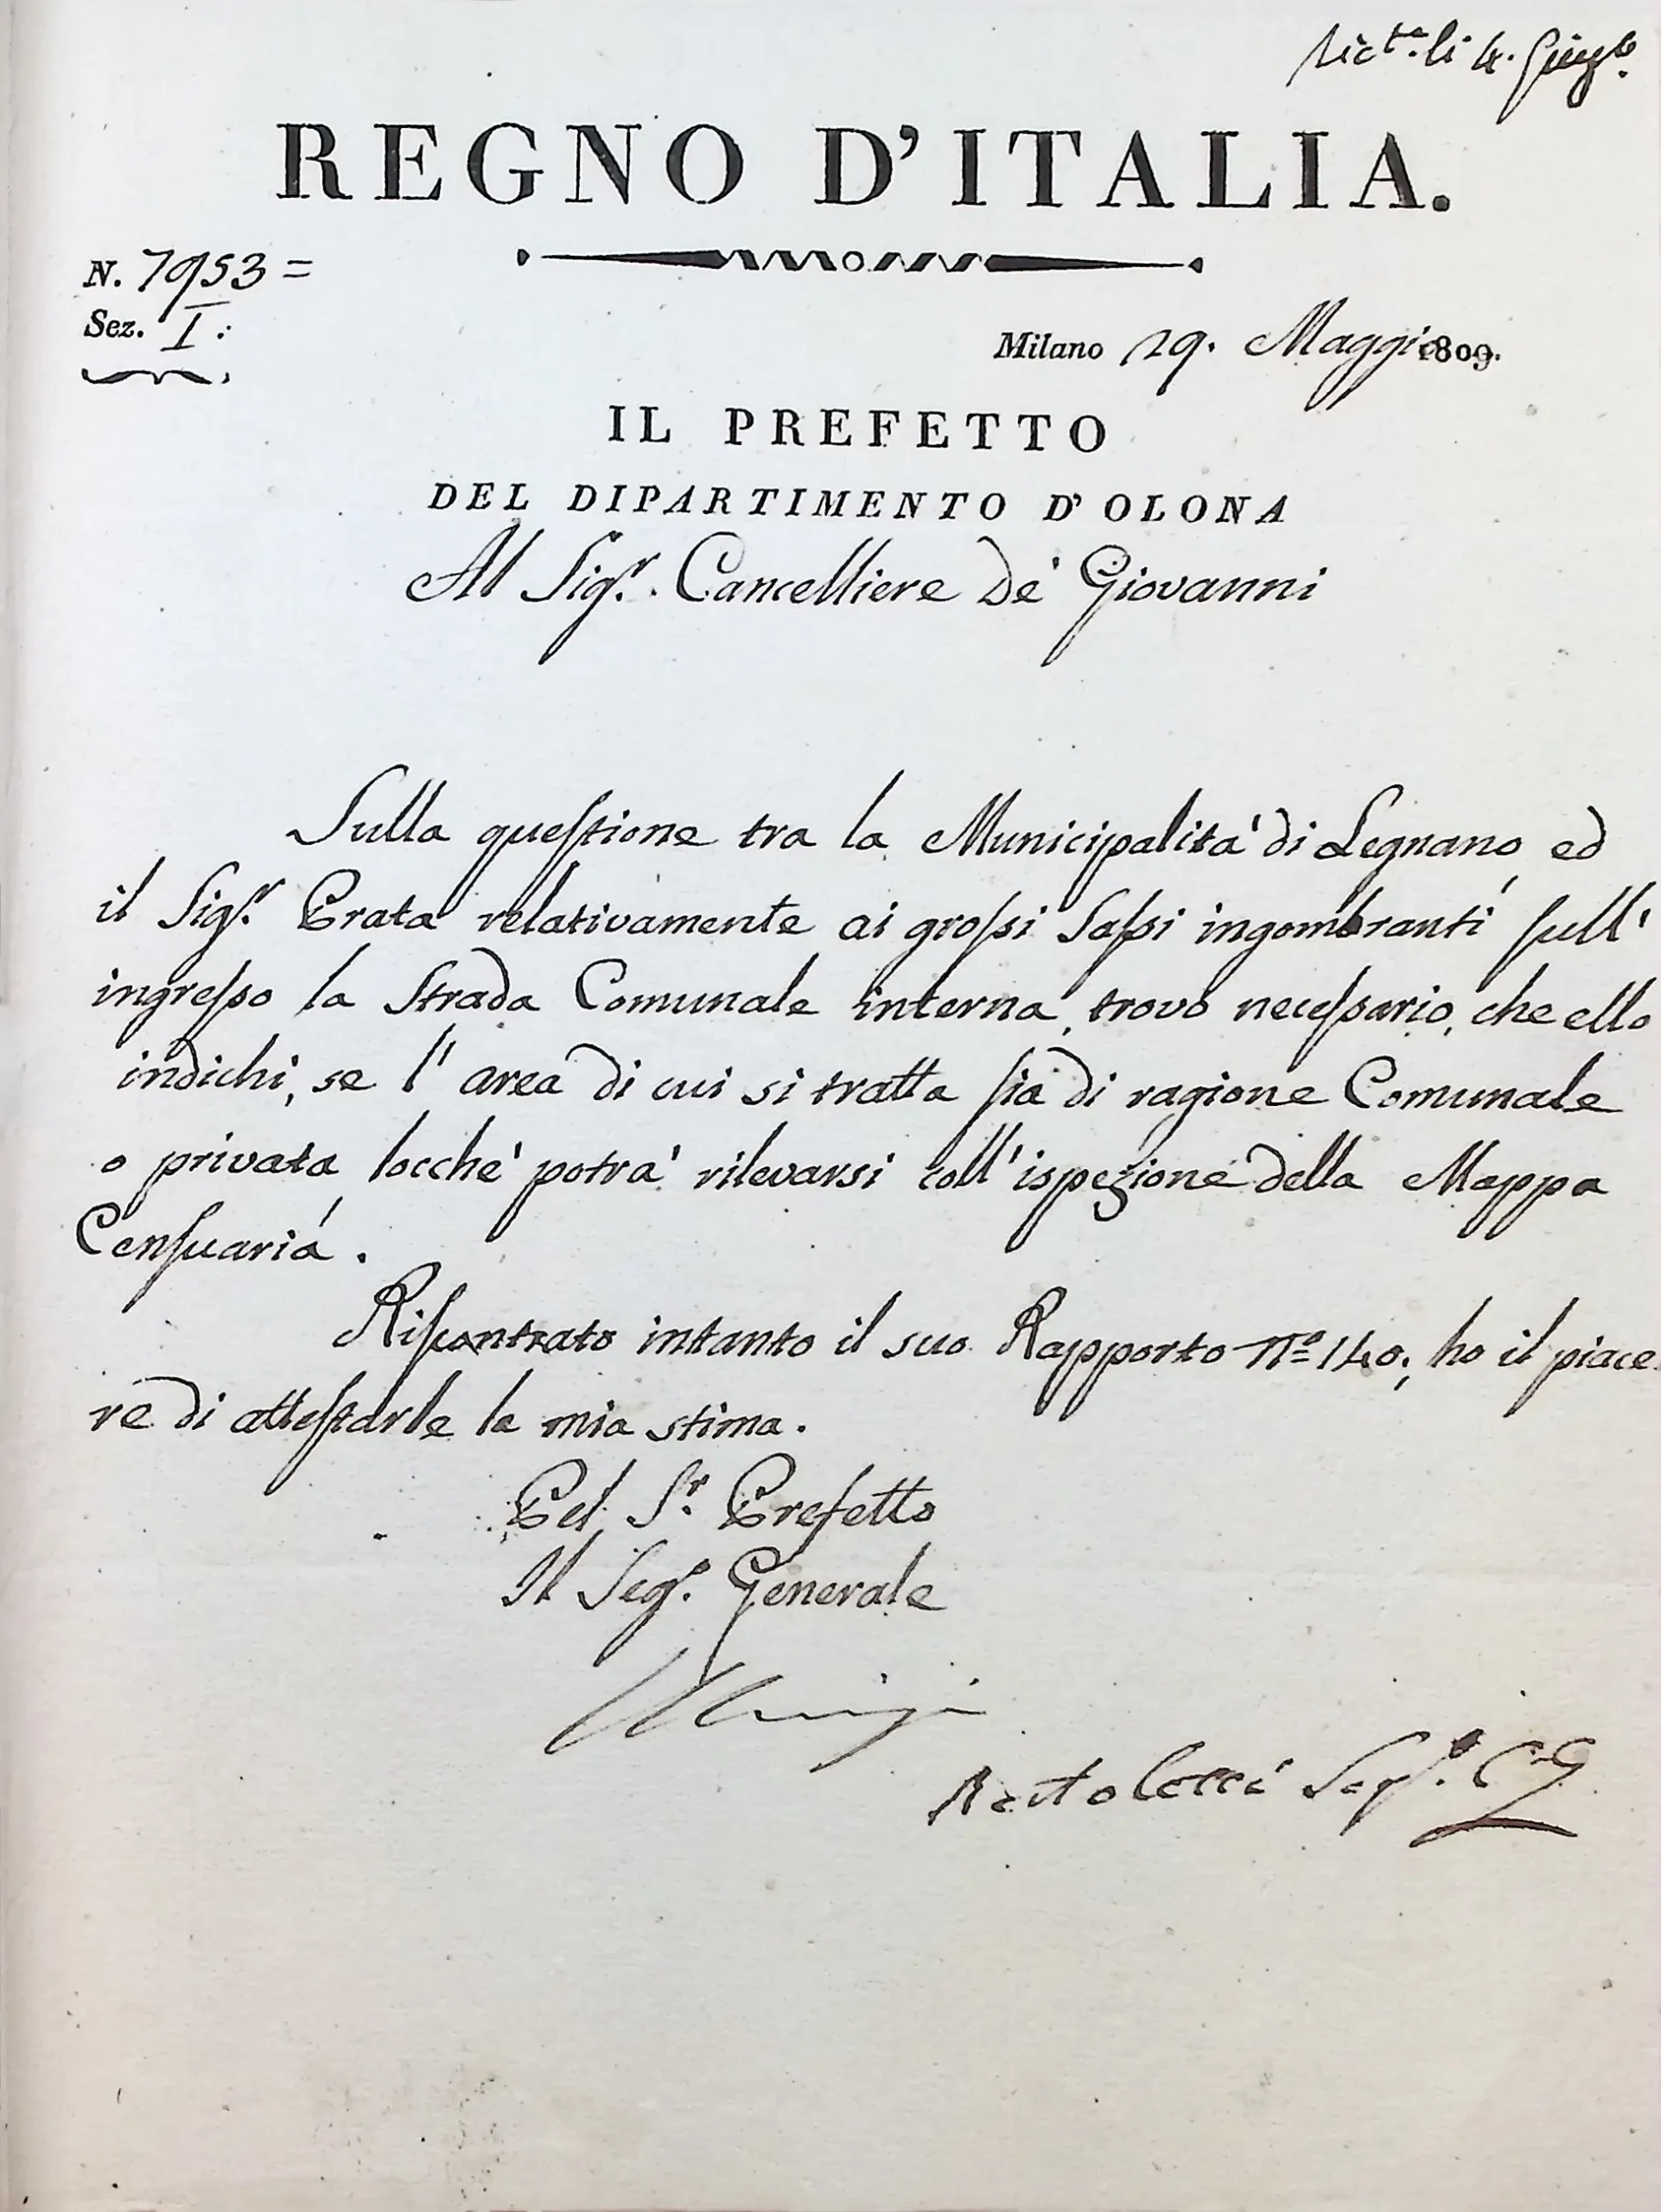 Ric.ta li 4. Giug.o
REGNO D'ITALIA.
N. 7953 =
Sez. I.
Milano 29. Maggio 1809.
IL PREFETTO
DEL DIPARTIMENTO D'OLONA
Al Sig.r Cancelliere De' Giovanni
Sulla questione tra la Municipalita' di Legnano ed
il Sig.r Prata relativamente ai grossi Sassi ingombranti sull'
ingresso la Strada Comunale interna, trovo necessario, che ella
indichi, se l'area di cui si tratta sia di ragione Comunale
o privata locche' potra' rilevarsi coll'ispezione della Mappa
Censuaria.
Riscontrato intanto il suo Rapporto N.o 140, ho il piace
re di attestarle la mia stima.
Pel S.r Prefetto
Il Seg.o Generale
Bertolacci Seg.o